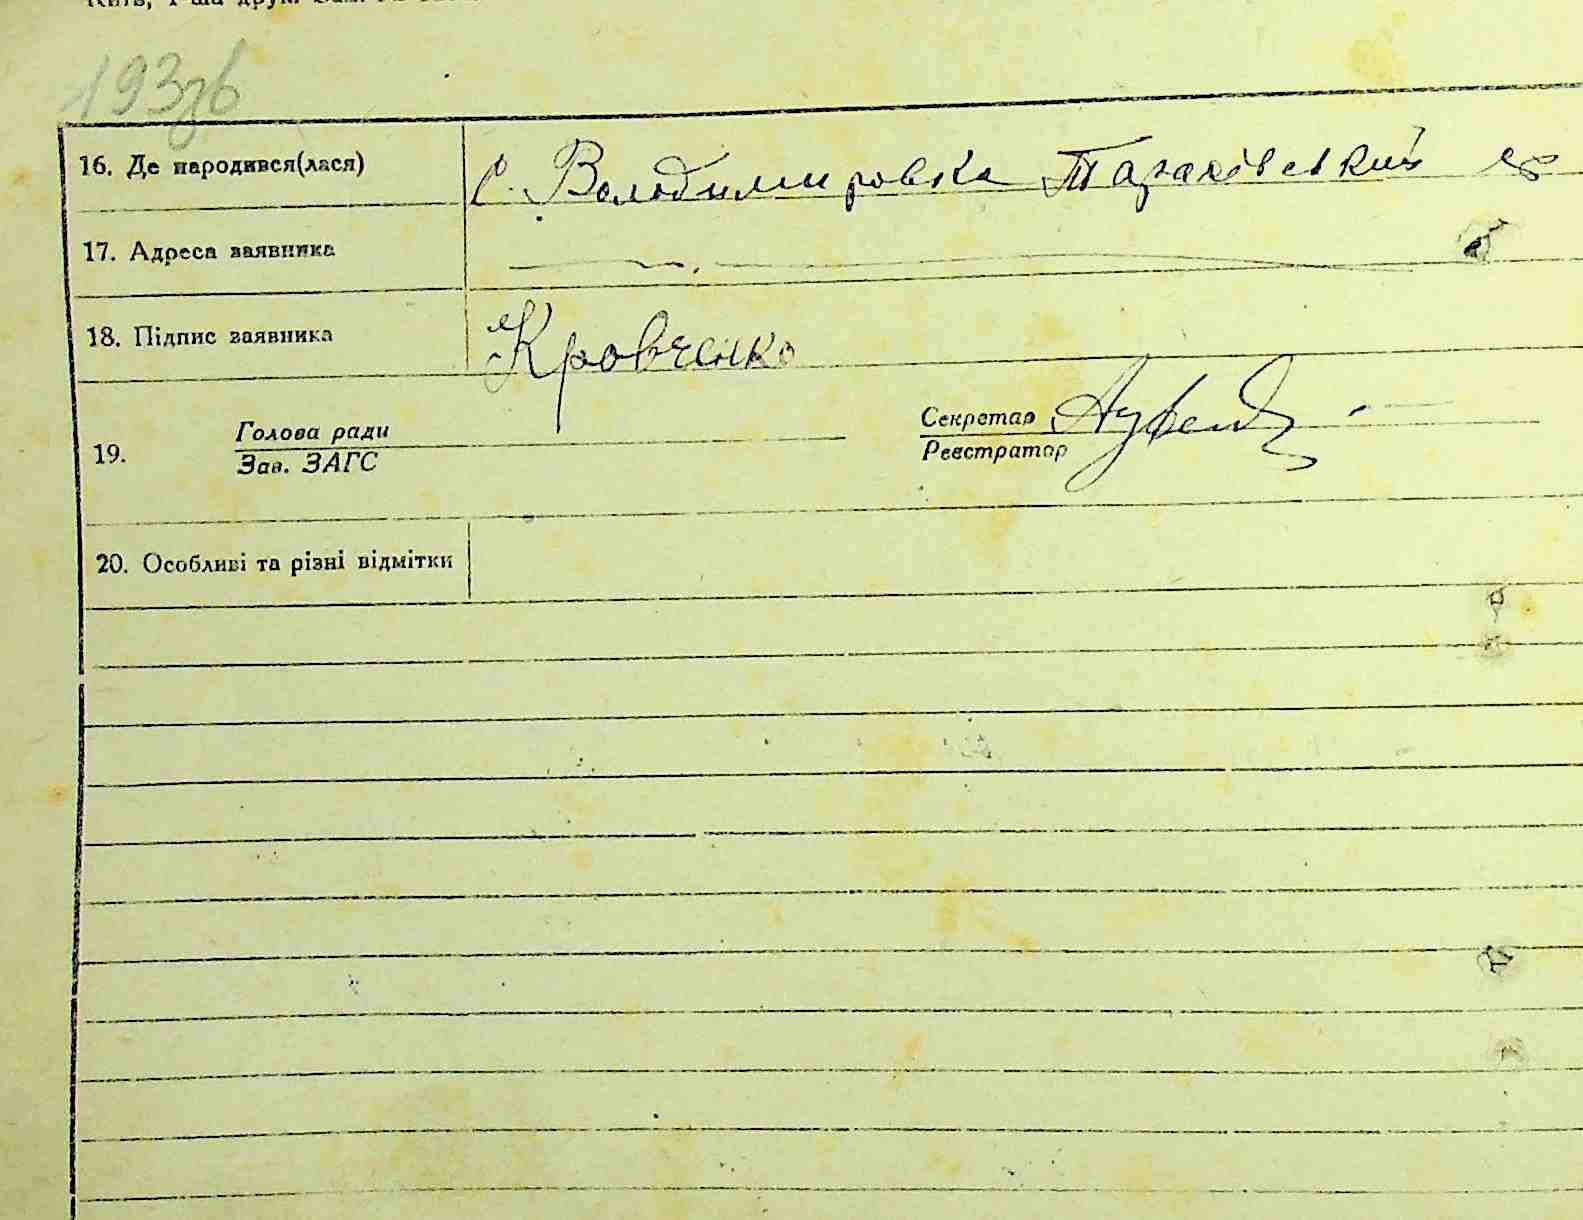 193
16. Де народився(лася) с. Володимировка
17. Адреса заявника
18. Підпис заявника Кровченко
19. Голова ради Секретар
Зав. ЗАГС Реєстратор
20. Особливі та різні відмітки